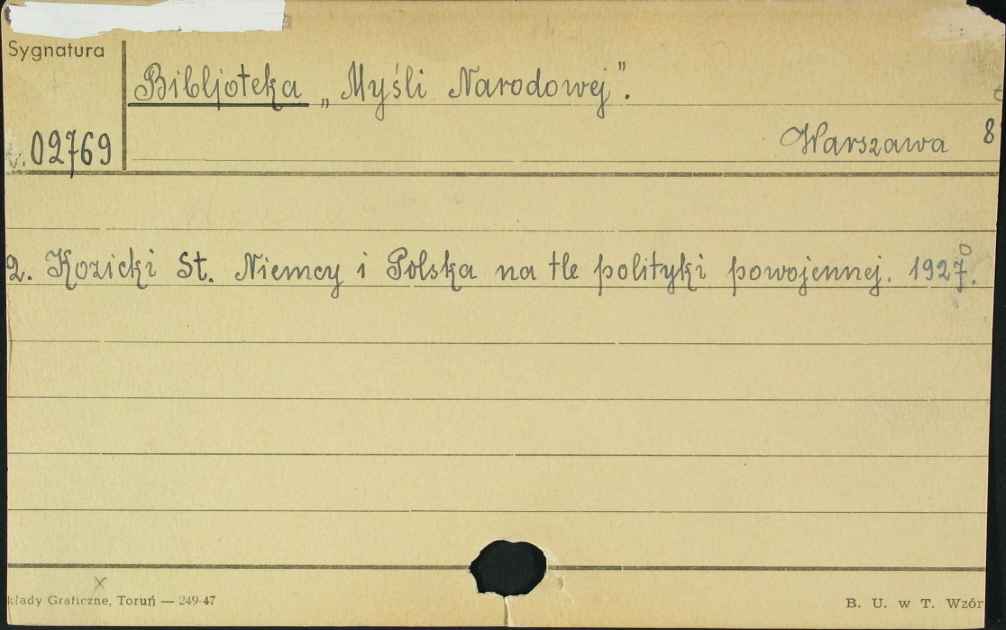 Sygnatura
Bibljoteka „Myśli Narodowej".
02769
Warszawa 8
2. Kozicki St. Niemcy i Polska na tle polityki powojennej. 1927.
kłady Graficzne, Toruń — 249-47
B. U. w T. Wzór